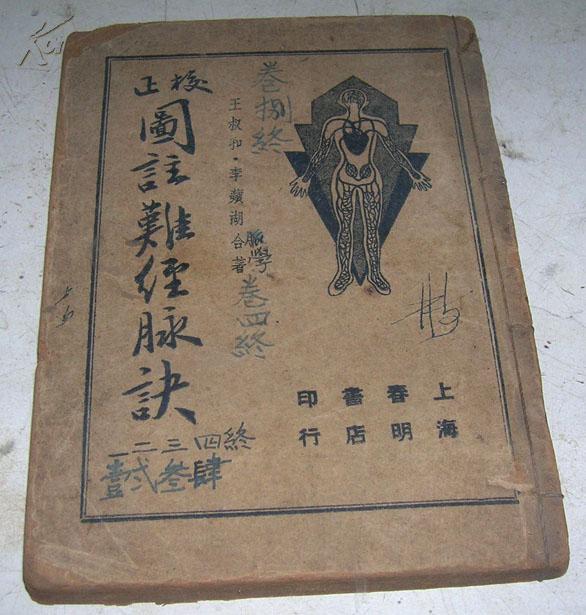 校正
圖註難經脉訣
王叔和·李蘋湖合著
卷捌終
脈學
卷四終
上海
春明
書店
印行
一二三四終
壹弍叁肆